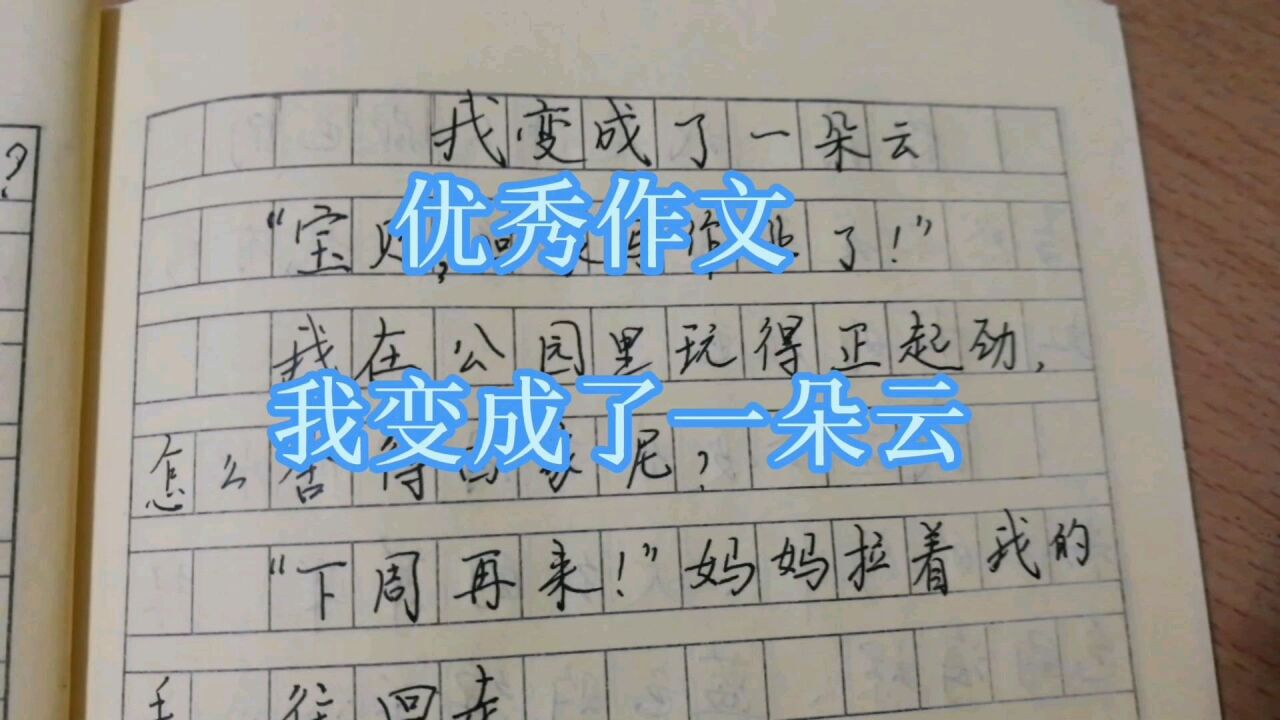 ?
我变成了一朵云
“宝贝,回家写作业了!”
优秀作文
我在公园里玩得正起劲,
我变成了一朵云
怎么舍得回家呢?
“下周再来!”妈妈拉着我的
手往回走